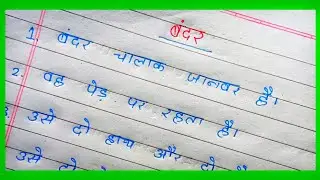 बंदर
1. बंदर चालाक जानवर है।
2. वह पेड़ पर रहता है।
3. उसे दो हाथ और दो
उसे दो